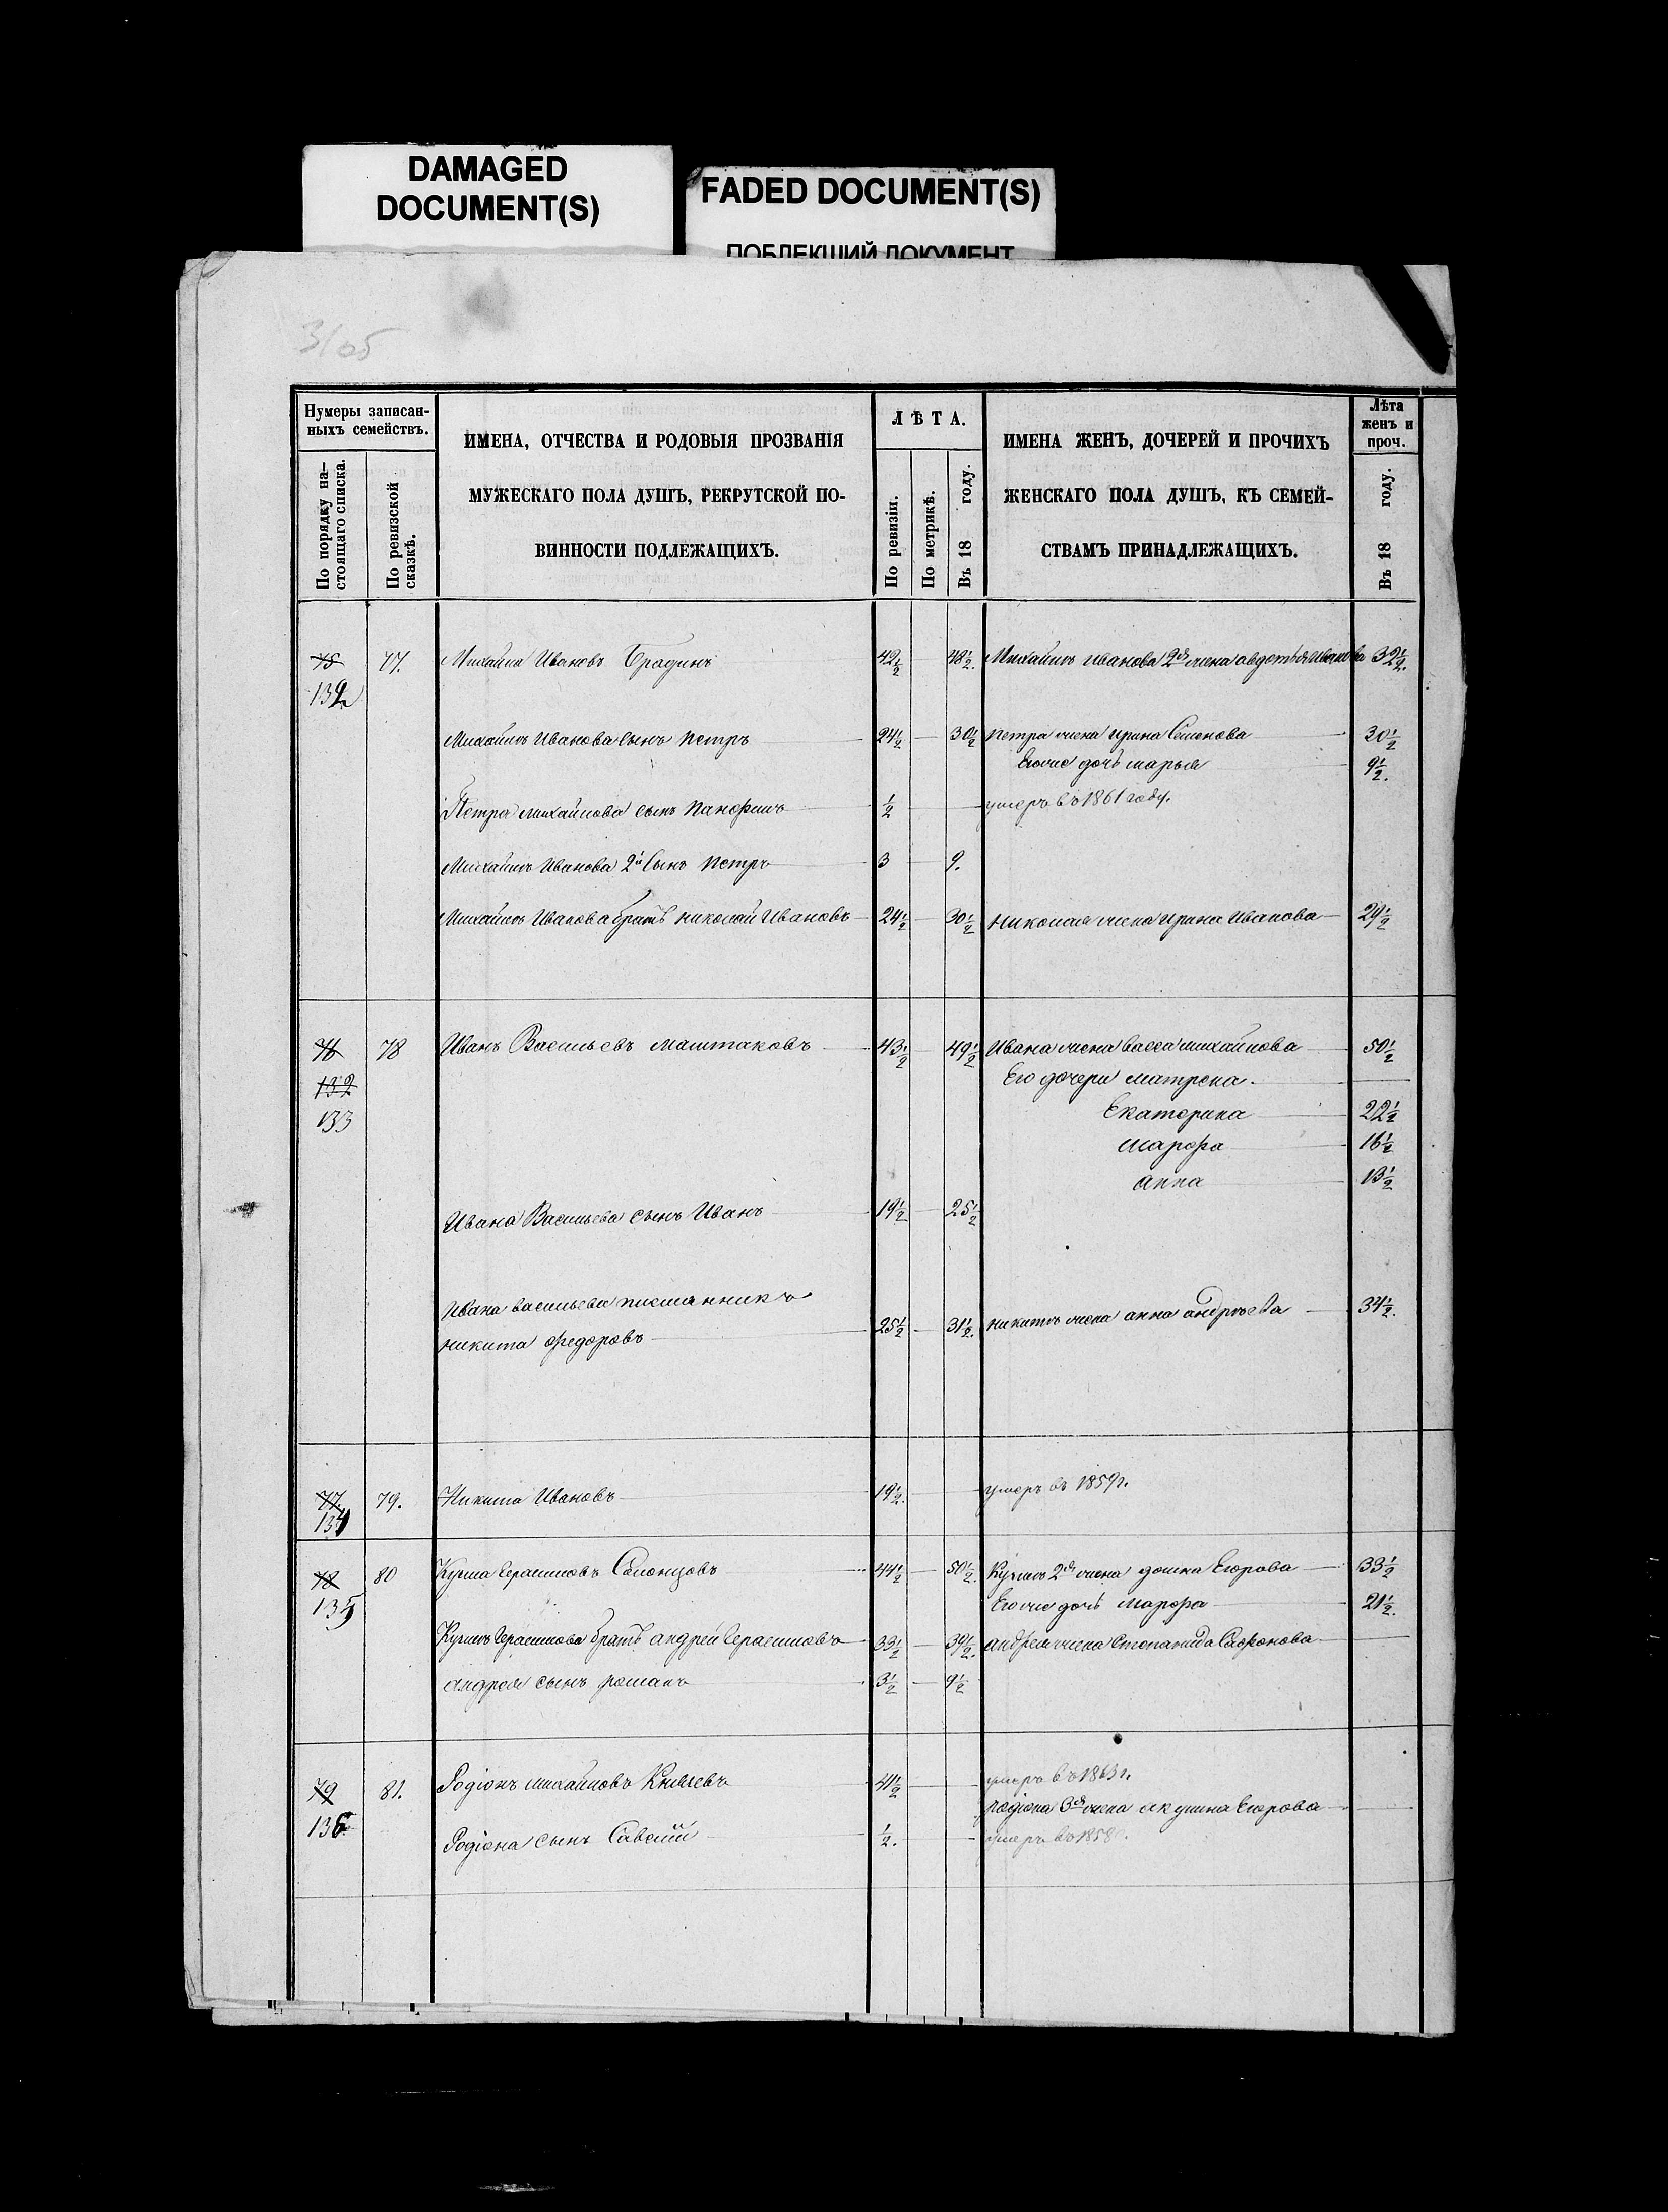 DAMAGED
DOCUMENT(S)
FADED DOCUMENT(S)
ПОБЛЕКШИЙ ДОКУМЕНТ
31об
Нумеры записан-
ныхъ семействъ.
По порядку на-
стоящаго списка.
По ревизской
сказкѣ.
ИМЕНА, ОТЧЕСТВА И РОДОВЫЯ ПРОЗВАНІЯ
МУЖЕСКАГО ПОЛА ДУШЪ, РЕКРУТСКОЙ ПО-
ВИННОСТИ ПОДЛЕЖАЩИХЪ.
ЛѢТА.
По ревизіи.
По метрикѣ.
Въ 18 году.
ИМЕНА ЖЕНЪ, ДОЧЕРЕЙ И ПРОЧИХЪ
ЖЕНСКАГО ПОЛА ДУШЪ, КЪ СЕМЕЙ-
СТВАМЪ ПРИНАДЛЕЖАЩИХЪ.
Лѣта
женъ и
проч.
Въ 18 году.
75 77. Михайла Ивановъ 42½ 48½. Михайлы Иванова 2я жена авдотья Иванова 32½.
132
Михайлы Иванова сынъ петръ 24½ 30½ петра жена ирина Семенова 30½
Егоже дочь марья 9½.
Петра михайлова сынъ панфилъ ½ умеръ въ 1861 году.
Михайлы Иванова 2й сынъ петръ 3 9.
Михайлы Иванова братъ николай Ивановъ 24½ 30½ николая жена ирина Иванова 29½
76 78 Иванъ Васильевъ маштаковъ 43½ 49½ Ивана жена васса михайлова 50½
132 Его дочери матрена.
133 Екатерина 22½
марфа 16½
анна 13½
Ивана Васильева сынъ Иванъ 19½ 25½
Ивана васильева племянникъ
никита федоровъ 25½ 31½. никиты жена анна андреева 34½.
77. 79. Никита Ивановъ 19½. умеръ въ 1859г.
134
78 80 Кузма Герасимовъ 44½ 50½. Кузмы 2я жена домна Егорова 33½
135 Егоже дочь марфа 21½.
Кузмы Герасимова братъ андрей Герасимовъ 33½ 39½. андрея жена Степанида Сафонова
андрея сынъ романъ 3½ 9½
79 81. Родіонъ михайловъ Князевъ 41½ умеръ въ 1863г.
родіона 3я жена акулина Егорова
136 Родіона сынъ Савелій ½. умеръ въ 1858